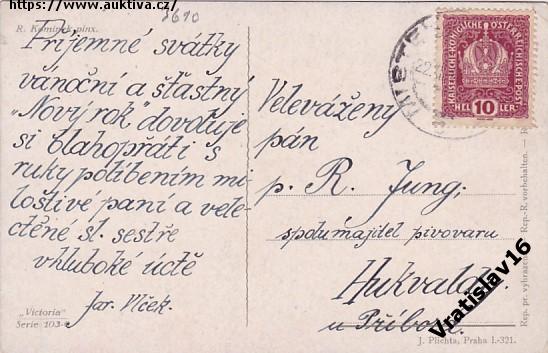 https://www.auktiva.cz/
2610
R. Kominek pinx.
Příjemné svátky
vánoční a šťastný
„Nový rok" dovoluje
si blahopřáti s
ruky políbením mi-
lostivé paní a vele-
ctěné sl. sestře
v hluboké úctě
Jar. Vlček.
„Victoria"
Serie 103-
KAISERLICHE KÖNIGLICHE ÖSTERREICHISCHE POST
HEL 10 LER
Velevážený
pán
p. R. Jung,
spolumajitel pivovaru
Hukvaldy
u Příbora.
J. Plichta, Praha I.-321.
Rep. pr. vyhrazeno. - Rep.-R. vorbehalten.
Vratislav16